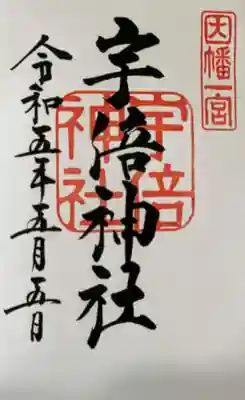 因幡一宮
宇倍神社
宇倍
神社
令和五年五月五日